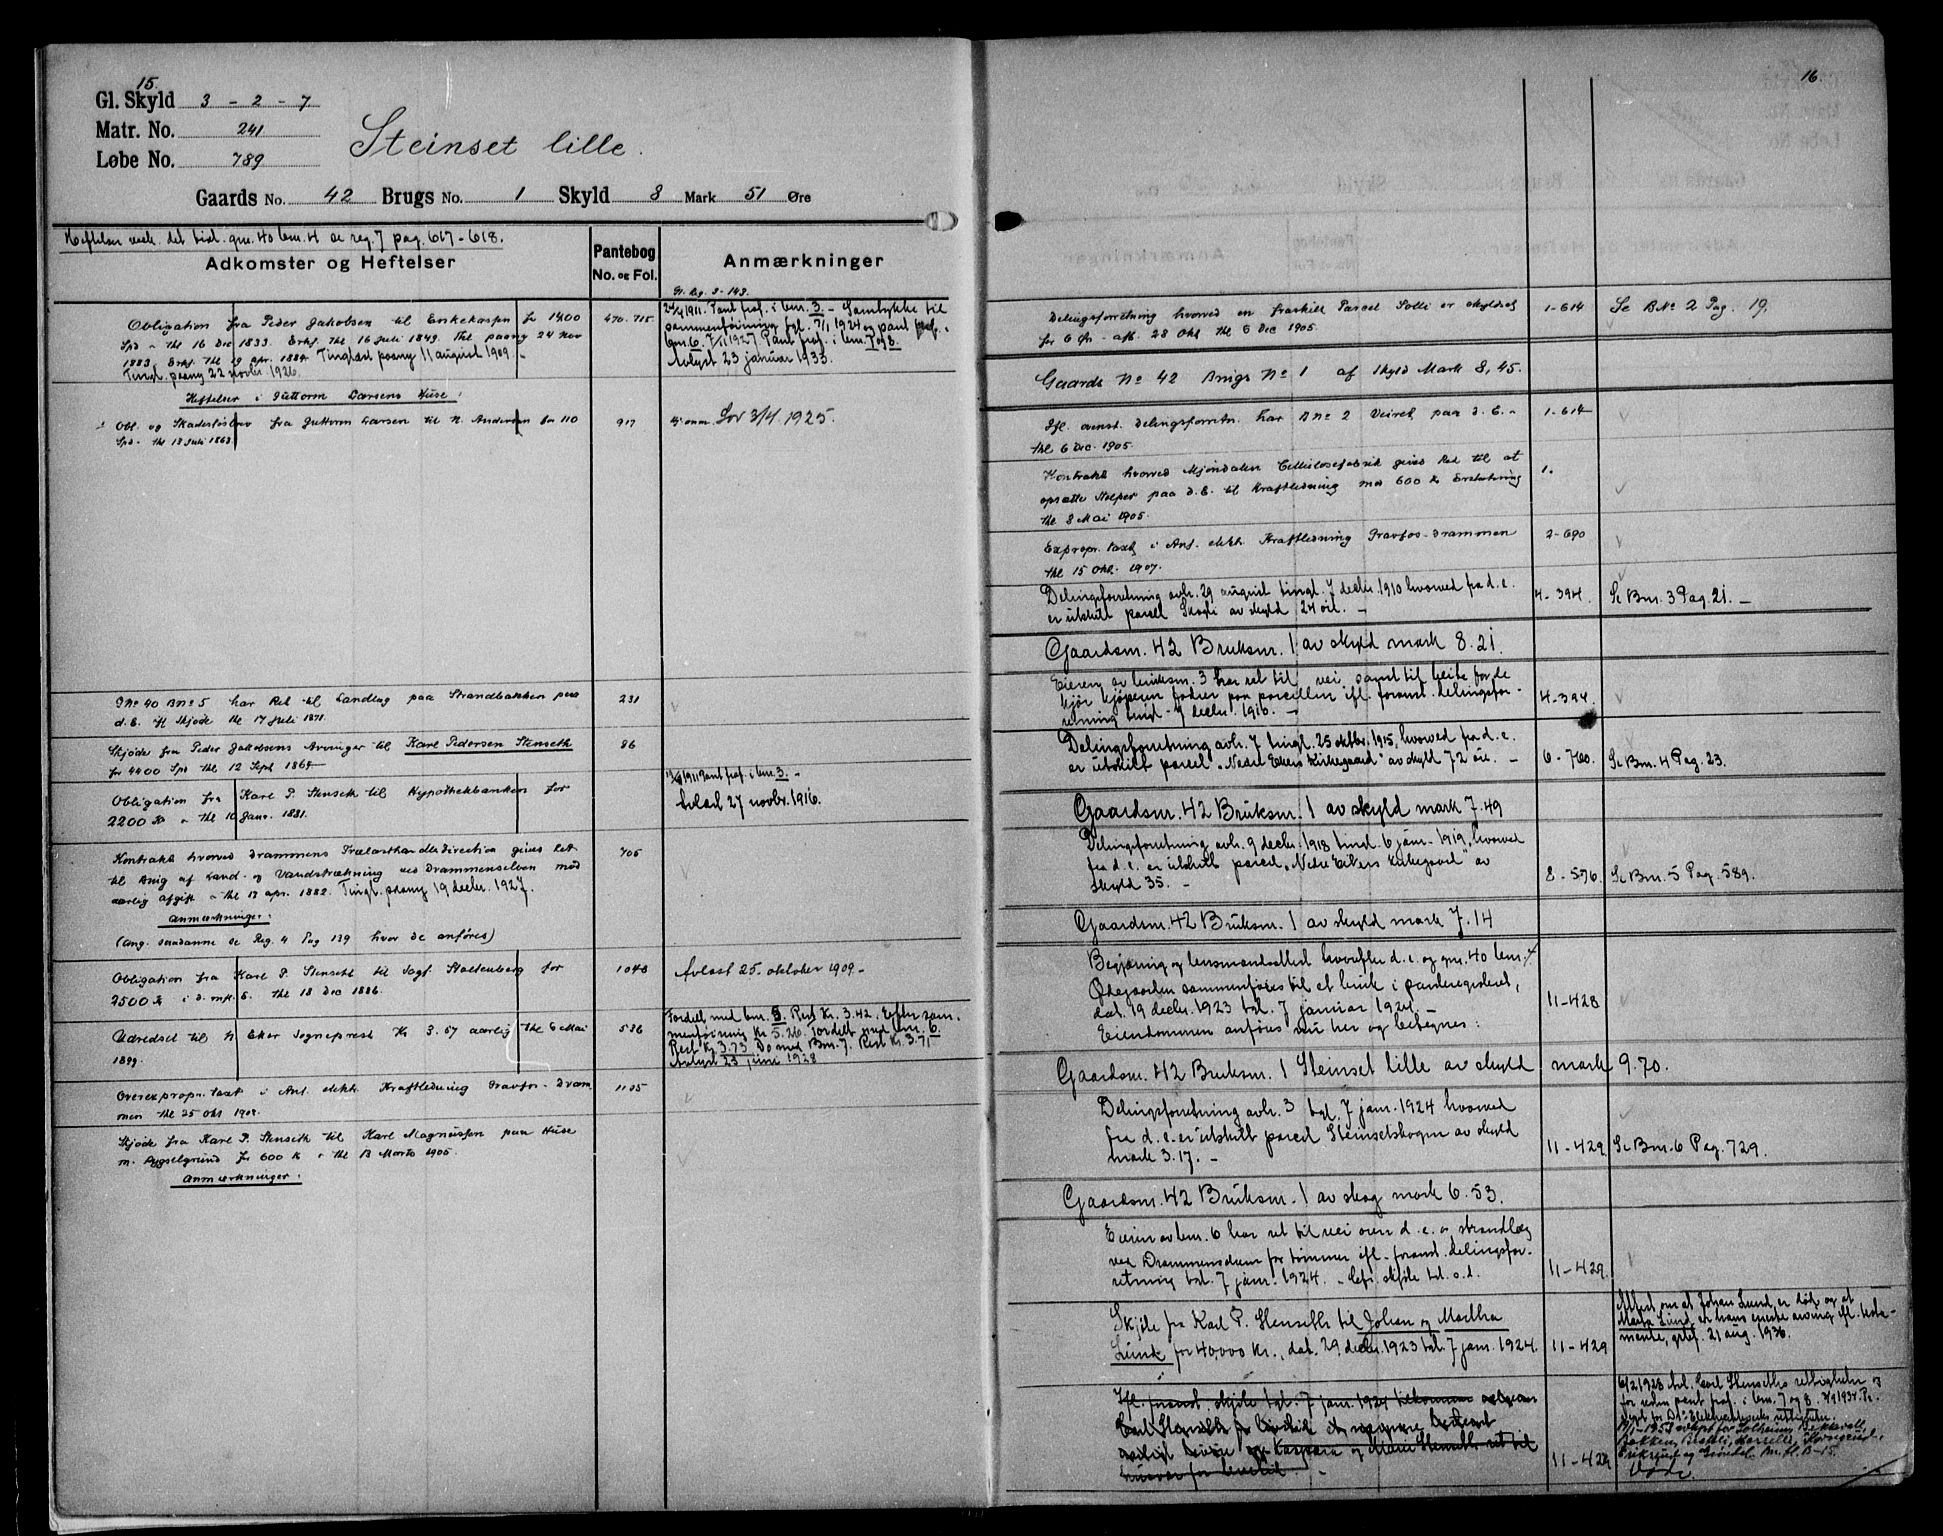 15.
Gl. Skyld 3 - 2 - 7
Matr. No. 241
Løbe No. 789
Steinset lille.
Gaards No. 42 Brugs No. 1 Skyld 8 Mark 51 Øre
Heftelser vedr. det tidl. gnr. 40 bnr. 4 se reg. 7 pag. 617-618.
Adkomster og Heftelser
Pantebog
No. og Fol.
Anmærkninger
Gl. Reg. 3-143.
Obligation fra Peder Jakobsen til Enkekassen for 1400
Spd - thl 16 Dec 1833. Erkj. thl 16 Juli 1849. Thl. paany 24 Nov
1883. Erkj. thl 19 apr. 1884. Tinglæst paany 11 august 1909.
Tingl. paany 22 novbr. 1926.
470. 715
1911. Pant fraf. i bnr. 3. - Samtykke til
sammenføining tgl. 7/1 1924 og pant fraf. i
bnr. 6. 7/1 1927 Pant fraf. i bnr. 7 og 8.
Avlyst 23 januar 1933.
Heftelser i Guttorm Larsens Huse:
Obl. og Skadesløsbrev fra Guttorm Larsen til N. Andersen for 110
Spd. thl 13 Juli 1863
917
Lov 3/4 1925.
GNo 40 BNo 5 har Ret til Landlug paa Strandbakken paa
d. E. ifl Skjøde thl 17 Juli 1871.
231
Skjøde fra Peder Jakobsens Arvinger til Karl Pedersen Stenseth
for 4400 Spd thl 12 Sept 1864
86
Obligation fra Karl P. Stenseth til Hypothekbanken for
2200 Kr - thl 10 Janr. 1881.
1911 Pant fraf. i bnr. 3. -
Avlæst 27 novbr. 1916.
Kontrakt hvorved Drammens Trælasthandlerdirection gives Ret
til Brug af Land- og Vandstrækning ved Drammenselven mod
aarlig afgift - thl 17 apr. 1882. Tingl. paany 19 decbr. 1927.
705
Anmærkninger:
(Ang. saadanne se Reg. 4 Pag 139 hvor de anføres)
Obligation fra Karl P. Stenseth til Sagf. Stoltenberg for
2500 Kr i d. mfl. E. thl 18 Dec 1886.
1048
Avlæst 25. oktober 1909.-
Udredsel til N Eker Sogneprest Kr 3.57 aarlig thl 6 Mai
1899.
536
Fordelt med bnr. 5. Rest Kr. 3.42. Efter sam.
menføining Kr 5.26. Fordelt med bnr. 6.
Rest Kr. 3.73 Do med Bnr. 7. Rest Kr. 3.71
Avlyst 23 juni 1928
Overexpropr. taxt i Anl. elekt. Kraftledning Gravfos-Dram
men thl 25 Okt 1902.
1105
Skjøde fra Karl P. Stenseth til Karl Magnussen paa Huse
m. Bygselgrund for 600 Kr - thl 13 Marts 1905.
Anmærkninger:
16
Delingsforretning hvorved en fraskilt Parcel Solli er skyldsat
for 6 Ør - afh. 28 Okt thl 6 Dec 1905.
1-614
Se BNo 2 Pag. 19.
Gaards No 42 Brugs No 1 af Skyld Mark 8,45.
Ifl. ovenst. Delingsforretn. har BNo 2 Veiret paa d. E. -
thl 6 Dec. 1905.
1-614
Kontrakt hvorved Mjøndalen Cellulosefabrik gives Ret til at
opsætte Stolper paa d. E. til Kraftledning mod 600 Kr Erstatning
thl 8 Mai 1905.
1.
Expropr. taxt i Anl. elekt. Kraftledning Gravfos-Drammen
thl 15 Okt. 1907.
2-690
Delingsforretning avh. 29 august tingl. 7 decbr. 1910 hvorved fra d. e.
er utskilt parcel Skogli av skyld 24 øre. -
4-394.
Se Bnr. 3 Pag. 21. -
Gaardsnr. 42 Bruksnr. 1 av skyld mark 8.21.
Eieren av bruksnr. 3 har ret til vei samt til beite for de
kjør kjøperen føder paa parcellen ifl. foranst. delingsfor-
retning tingl. 7 decbr. 1910. -
4-394.
Delingsforretning avh. 7 tingl. 25 oktbr. 1915, hvorved fra d. e.
er utskilt parcel "Nedre Ekers Kirkegaard" av skyld 72 øre. -
6-760.
Se Bnr. 4 Pag. 23.
Gaardsnr. 42 Bruksnr. 1 av skyld mark 7.49
Delingsforretning avh. 9 decbr. 1918 tingl. 6 jan. 1919, hvorved
fra d. e. er utskilt parcel "Nedre Eikers kirkegaard" av
skyld 35. -
8-576.
Se Bnr. 5 Pag. 589.
Gaardsnr. 42 Bruksnr. 1 av skyld mark 7.14
Begjæring og lensmandsattest hvorefter d. e. og gnr. 40 bnr. 4
Ødegaarden sammenføies til et bruk i panteregisteret,
dat. 19 decbr. 1923 tgl. 7 januar 1924. -
Eiendommen anføres nu her og betegnes:
11-428
Gaardsnr. 42 Bruksnr. 1 Steinset lille av skyld mark 9.70.
Delingsforretning avh. 3 tgl. 7 jan. 1924 hvorved
fra d. e. er utskilt parcel Steinsetskogen av skyld
mark 3.17. -
11-429
Se Bnr. 6 Pag. 729.
Gaardsnr. 42 Bruksnr. 1 av skog mark 6.53.
Eieren av bnr. 6 har ret til vei over d. e. og strandlæg
ved Drammenselven for tømmer ifl. foranst. delingsfor-
retning tgl. 7 jan. 1924. - Cfr. skjøte tgl. s. d.
11-429.
Skjøte fra Karl P. Stenseth til Johan og Martha
Lund for 40,000 kr., dat. 29 decbr. 1923 tgl. 7 jan. 1924.
11-429
Attest om at Johan Lund er død og at
Marta Lund er hans eneste arving ifl. testa-
mente, grlst. 21 aug. 1936.
Ifl. foranst. skjøte tgl. 7 jan. 1924 tilkommer sælgeren
Carl Stenseth
Kaspara og Marie Stenseth ret til
husvær for levetid -
11-429
6/2 1928 tgl. Carl Stenseths rettigheter
for veden pant fraf. i bnr. 7 og 8.